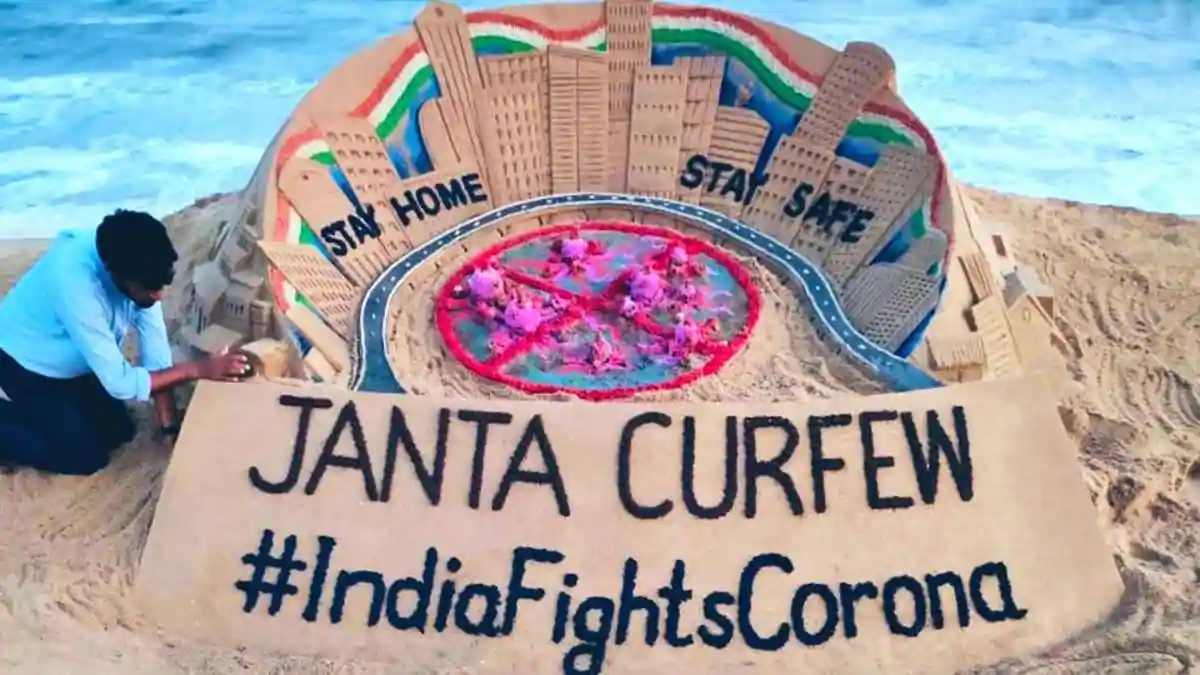 STAY HOME
STAY SAFE
JANTA CURFEW
#IndiaFightsCorona